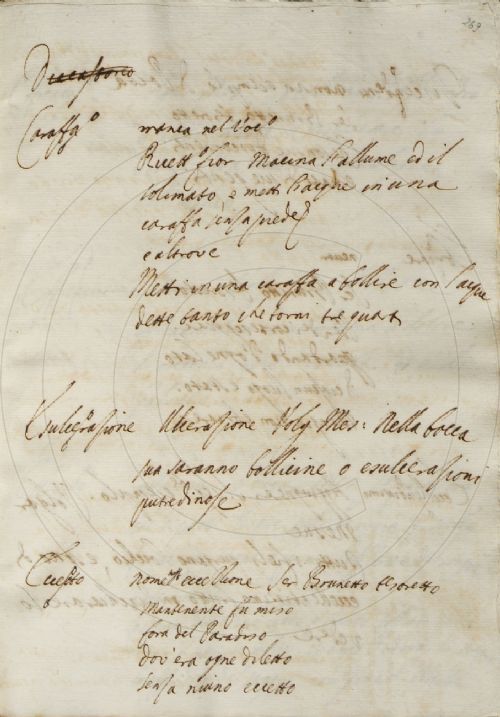 269
Caraffa manca nel Voc.º
Ricett. fior Macina l'allume ed il
solimato e metti l'acque in una
caraffa senza piede
e altrove
Metti in una caraffa a bollire con l'acque
dette tanto che torni tre quarti
Esulcerasione Ulcerasione Volg Mes: Nella bocca
sua saranno bollicine o esulcerasioni
putredinose
Eccetto nome eccezione Ser Brunetto tesoretto
Mantenente fu miso
fora del Paradiso
dov'era ogne diletto
senza niuno eccetto